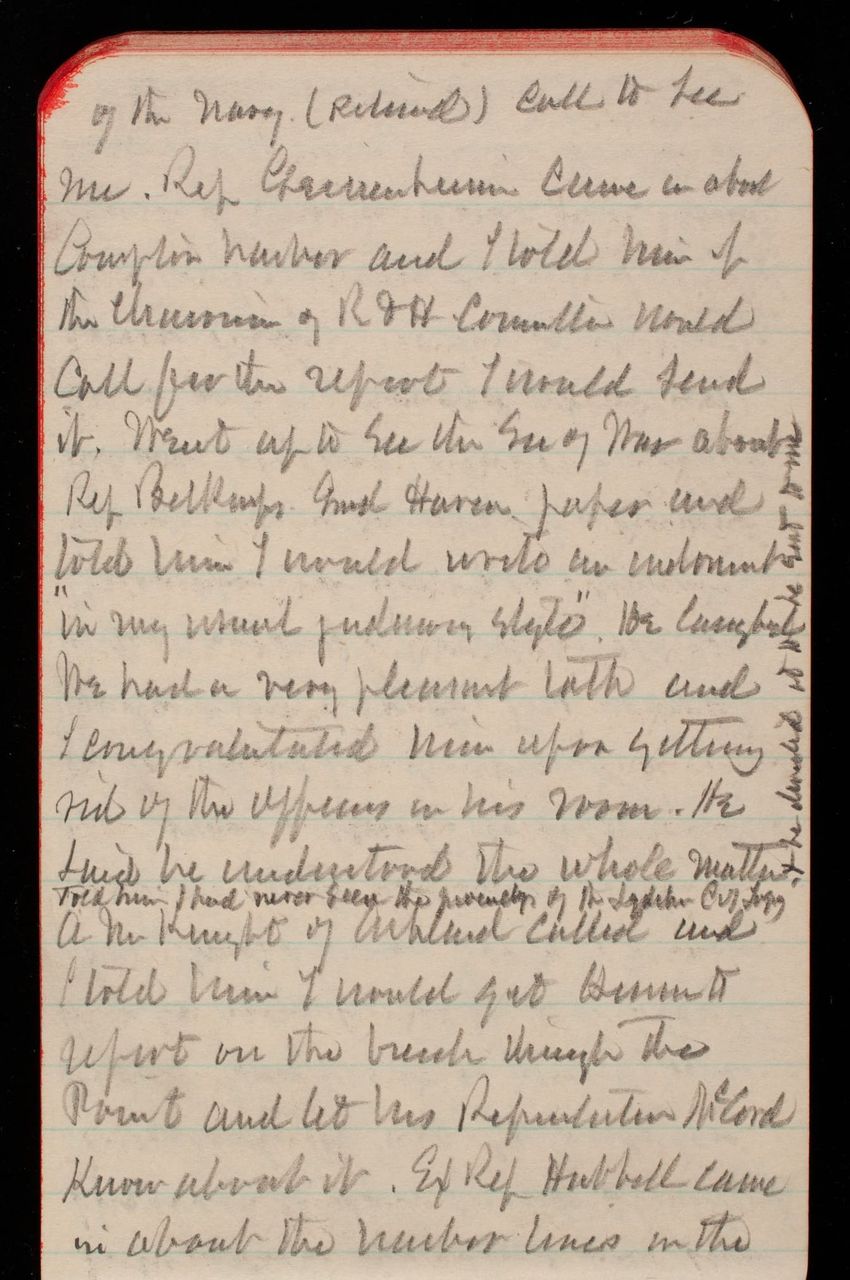 of the Navy (Retired) call to see
me. Rep came in about
Compton harbor and I told him if
the Chairman of R & H Committee would
call for the report I would send
it. Went up to see the Sec of War about
Rep Belknap Grand Haven paper and
told him I would write an indorsment
"in my usual style". He laughed
We had a very pleasant talk and
I congratulated him upon getting
rid of the officers in his room. He
said he understood the whole matter.
told him I had never seen the of the
A Mr Knight of Ashland called and
I told him I would get
report on the breach through the
Point and let his Representative McCord
know about it. Ex Rep Hubbell came
in about the harbor lines in the
& he directed it to be sent to me